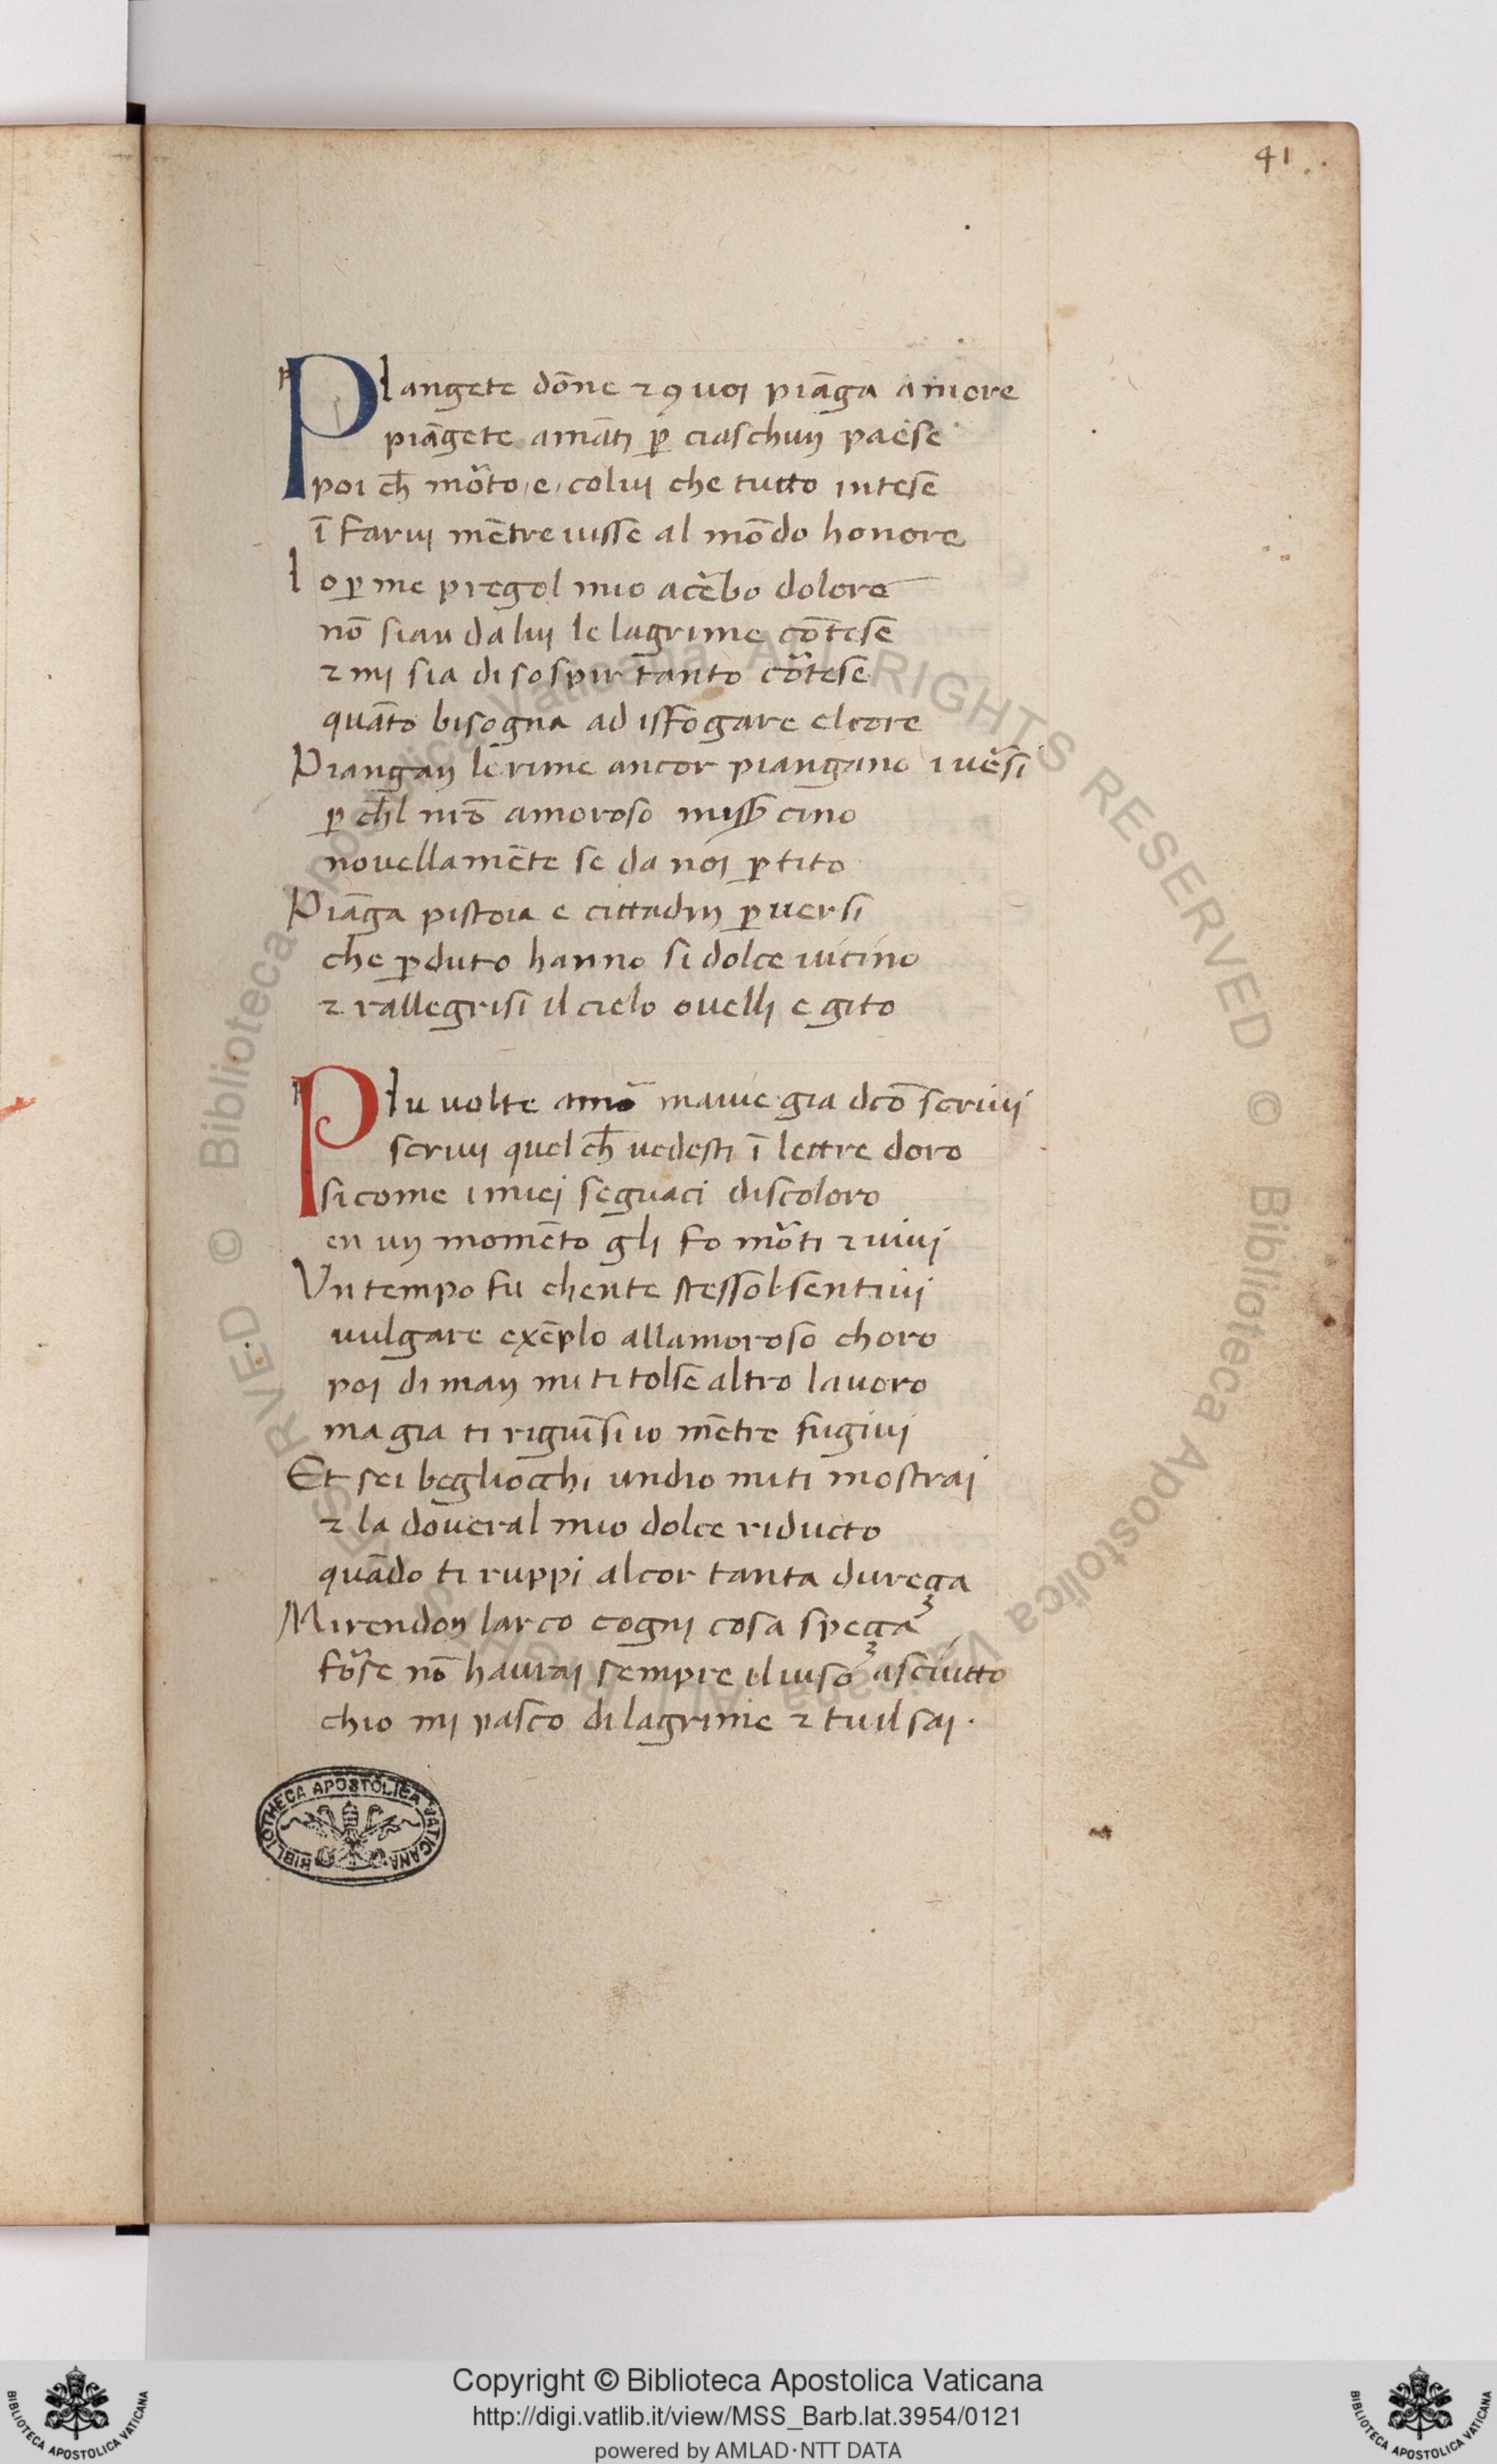 41
PIangete dōne ⁊ ꝯ uoi piāga amore
piāgete amāti ꝑ ciaschun paese
poi ch̄ morto e colui che tutto intese
ī farui mētre uisse al mōdo honore
Io ꝑ me pregol mio acerbo dolore
nō sian da lui le lagrime cōtese
⁊ mi sia di sospir tanto cortese
quāto bisogna ad isfogare el core
Piangan le rime ancor piangano i uersi
ꝑ ch̄l nr̄o amoroso miss̄ cino
nouellamēte se da noi ꝑtito
Piāga pistoia e cittadin ꝑuersi
che ꝑduto hanno si dolce uicino
⁊ rallegrisi il cielo ouelli e gito
PIu uolte amor mauie gia dcō scriui
scriui quel ch̄ uedesti ī lettre doro
si come i miei seguaci discoloro
en un momēto gli fo morti ⁊ uiui
Vn tempo fu chente stessol sentiui
uulgare exēplo allamoroso choro
poi di man mi ti tolse altro lauoro
ma gia ti riguīsi io mētre fugiui
Et sei begliocchi undio mi ti mostrai
⁊ la doueral mio dolce riducto
quādo ti ruppi al cor tanta dureçça
Mirendon larco cogni cosa speçça
forse nō haurai sempre il uiso asciutto
chio mi pasco di lagrime ⁊ tu il sai.
BIBLIOTHECA APOSTOLICA VATICANA
Copyright © Biblioteca Apostolica Vaticana
http://digi.vatlib.it/view/MSS_Barb.lat.3954/0121
powered by AMLAD·NTT DATA